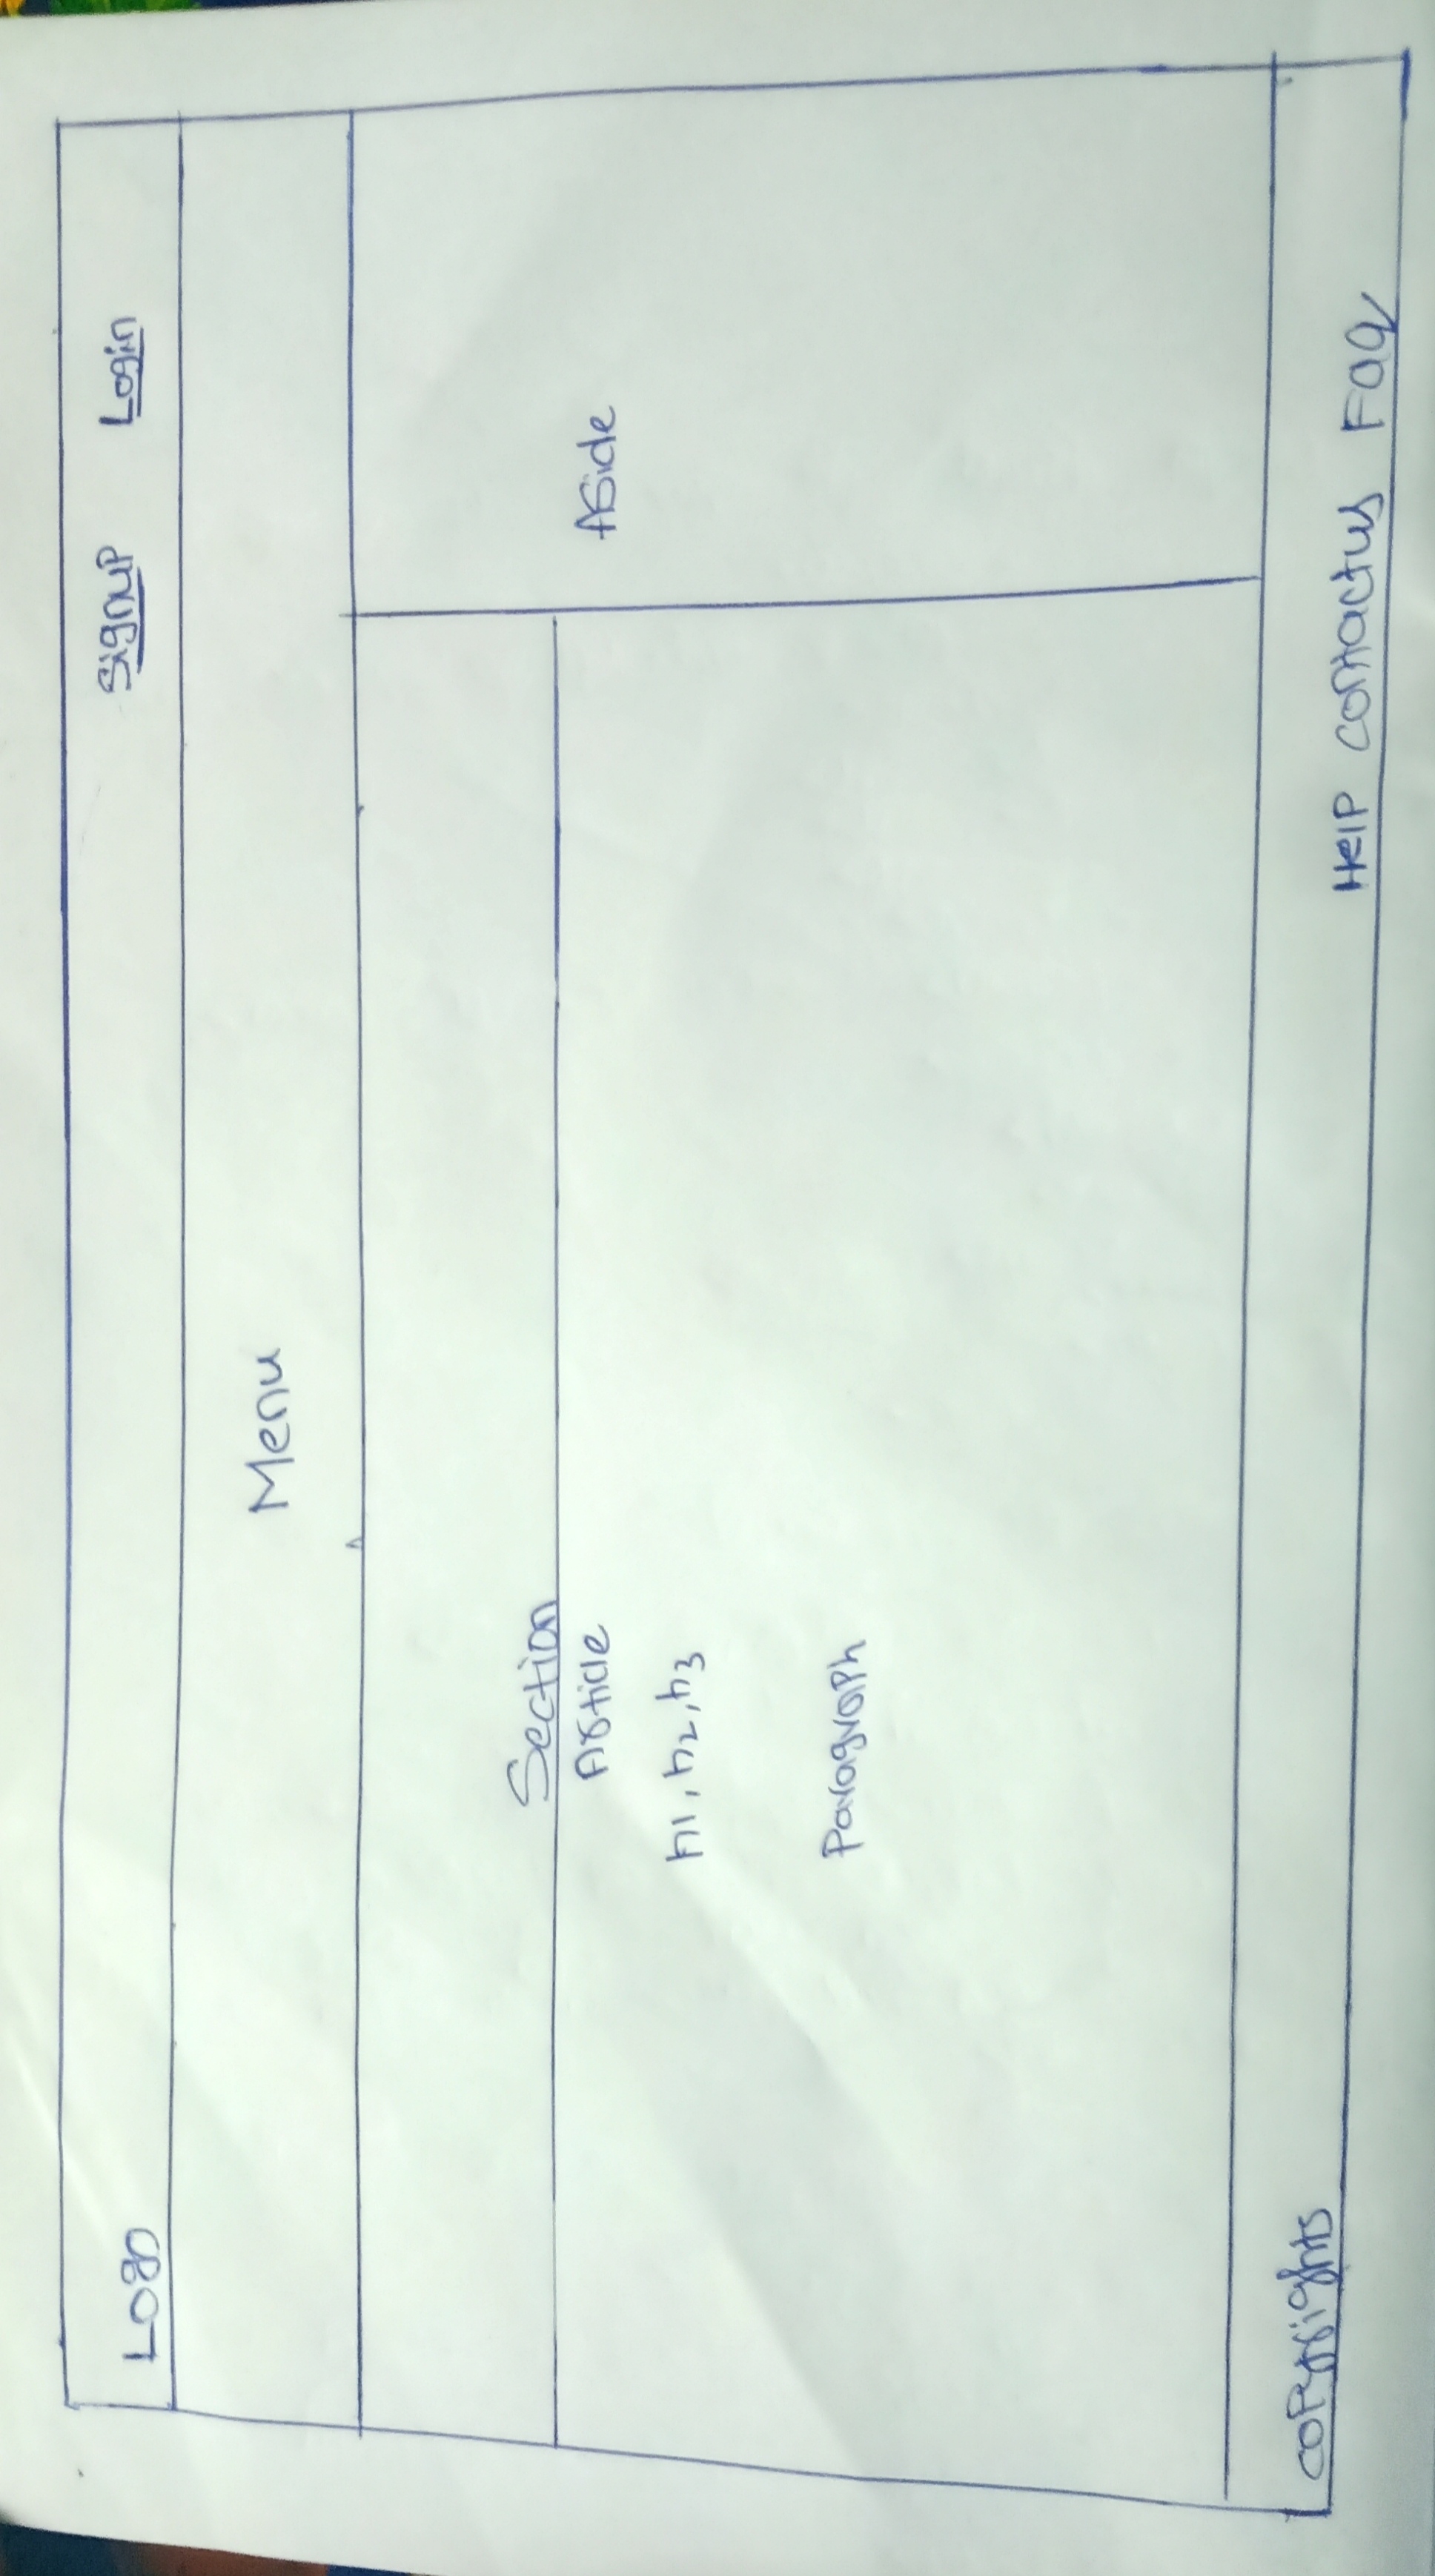 Logo Signup Login
Menu
Section
Article
h1, h2, h3
Paragraph
Aside
Copyrights Help Contactus Faq